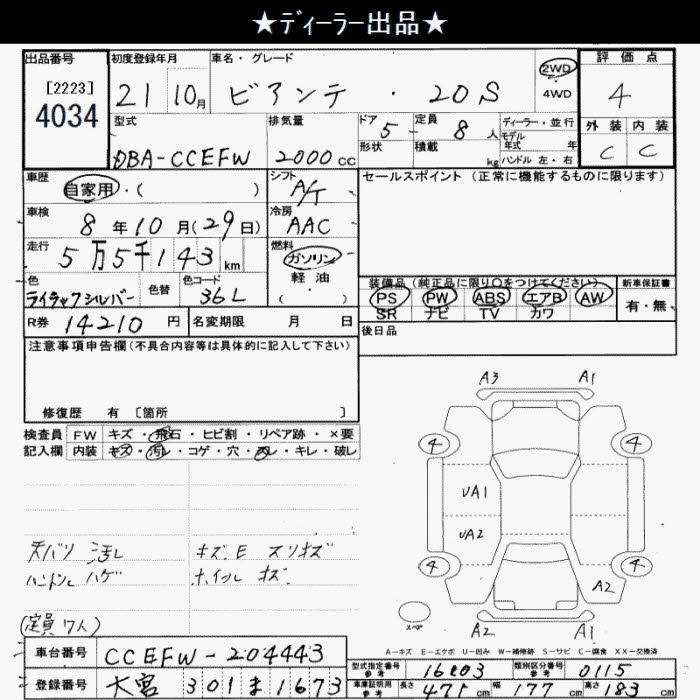 ★ディーラー出品★
出品番号 初度登録年月 車名・グレード 評価点
[2223]
4034
21 10月 ビアンテ・20S 2WD 4WD 4
型式 排気量 ドア 定員 ディーラー・並行 外装 内装
DBA-CCEFW 2000cc 5 8人 モデル年式 年 C C
形状 積載 kg ハンドル 左・右
車歴 シフト セールスポイント（正常に機能するものに限ります）
自家用・( ) A/T
車検 冷房
8年10月(29日) AAC
走行 燃料
5万5千143km ガソリン・軽油・( )
色 色替 色コード 装備品（純正品に限り○をつけてください） 新車保証書
ライラックシルバー 36L PS PW ABS エアB AW 有・無
SR ナビ TV カワ
R券 14210円 名変期限 月 日 後日品
注意事項申告欄(不具合内容等は具体的に記入して下さい)
修復歴 有 [箇所 ]
検査員 FW キズ・飛石・ヒビ割・リペア跡・×要
記入欄 内装 キズ・汚レ・コゲ・穴・スレ・キレ・破レ
A3 A1
4 4
UA1
UA2
4 4
A2
スペア
A2 A1
天バリ 汚レ キズE スリキズ
ハンドル ハゲ ホイル キズ
(定員7人)
A-キズ E-エクボ U-凹み W-補修跡 S-サビ C-腐食 XX-交換済
車台番号 CCEFW-204443 型式指定番号 参考 16203 類別区分番号 参考 0115
登録番号 大宮 301 ま 1673 車庫証明用 参考 長さ 471cm 幅 177cm 高さ 183cm